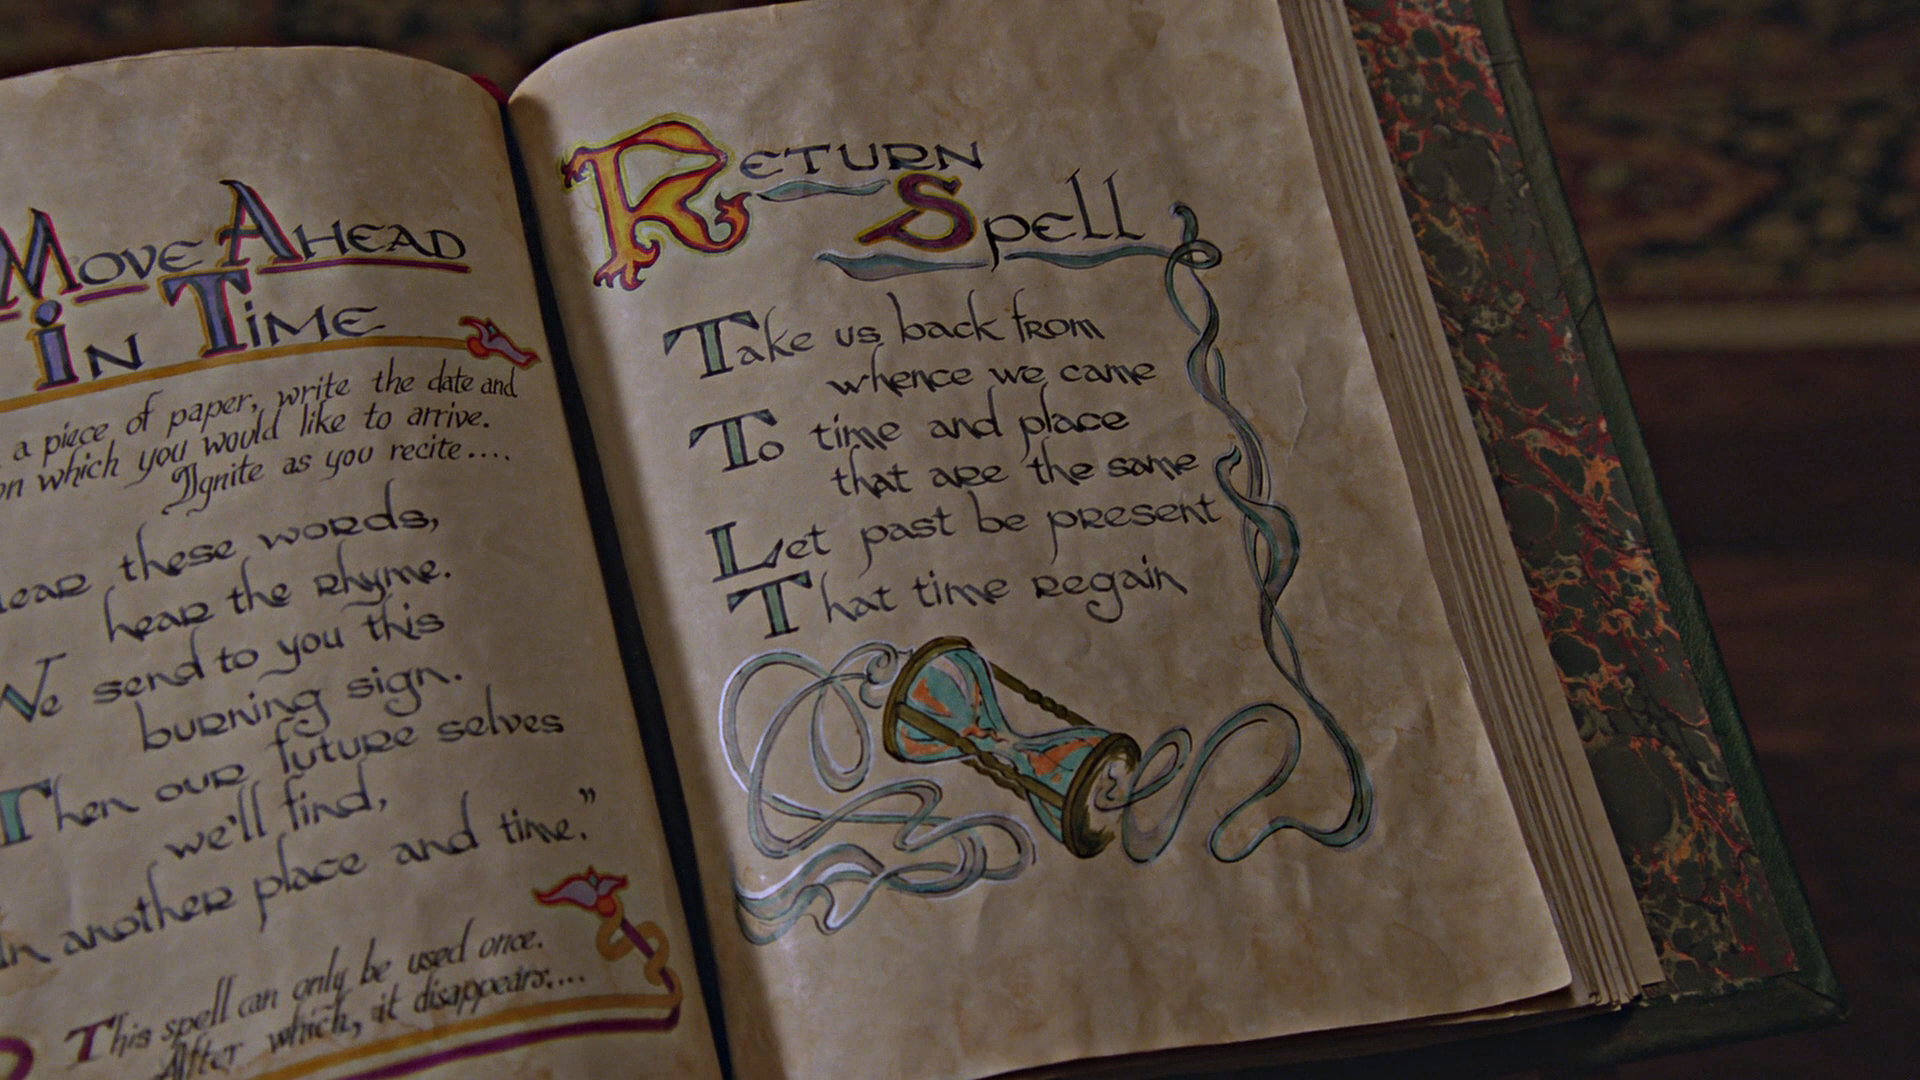 Move Ahead
in Time
a piece of paper, write the date and
on which you would like to arrive.
Ignite as you recite....
these words,
hear the rhyme.
We send to you this
burning sign.
Then our future selves
we'll find,
In another place and time."
This spell can only be used once.
After which, it disappears....
Return
Spell
Take us back from
whence we came
To time and place
that are the same
Let past be present
That time regain